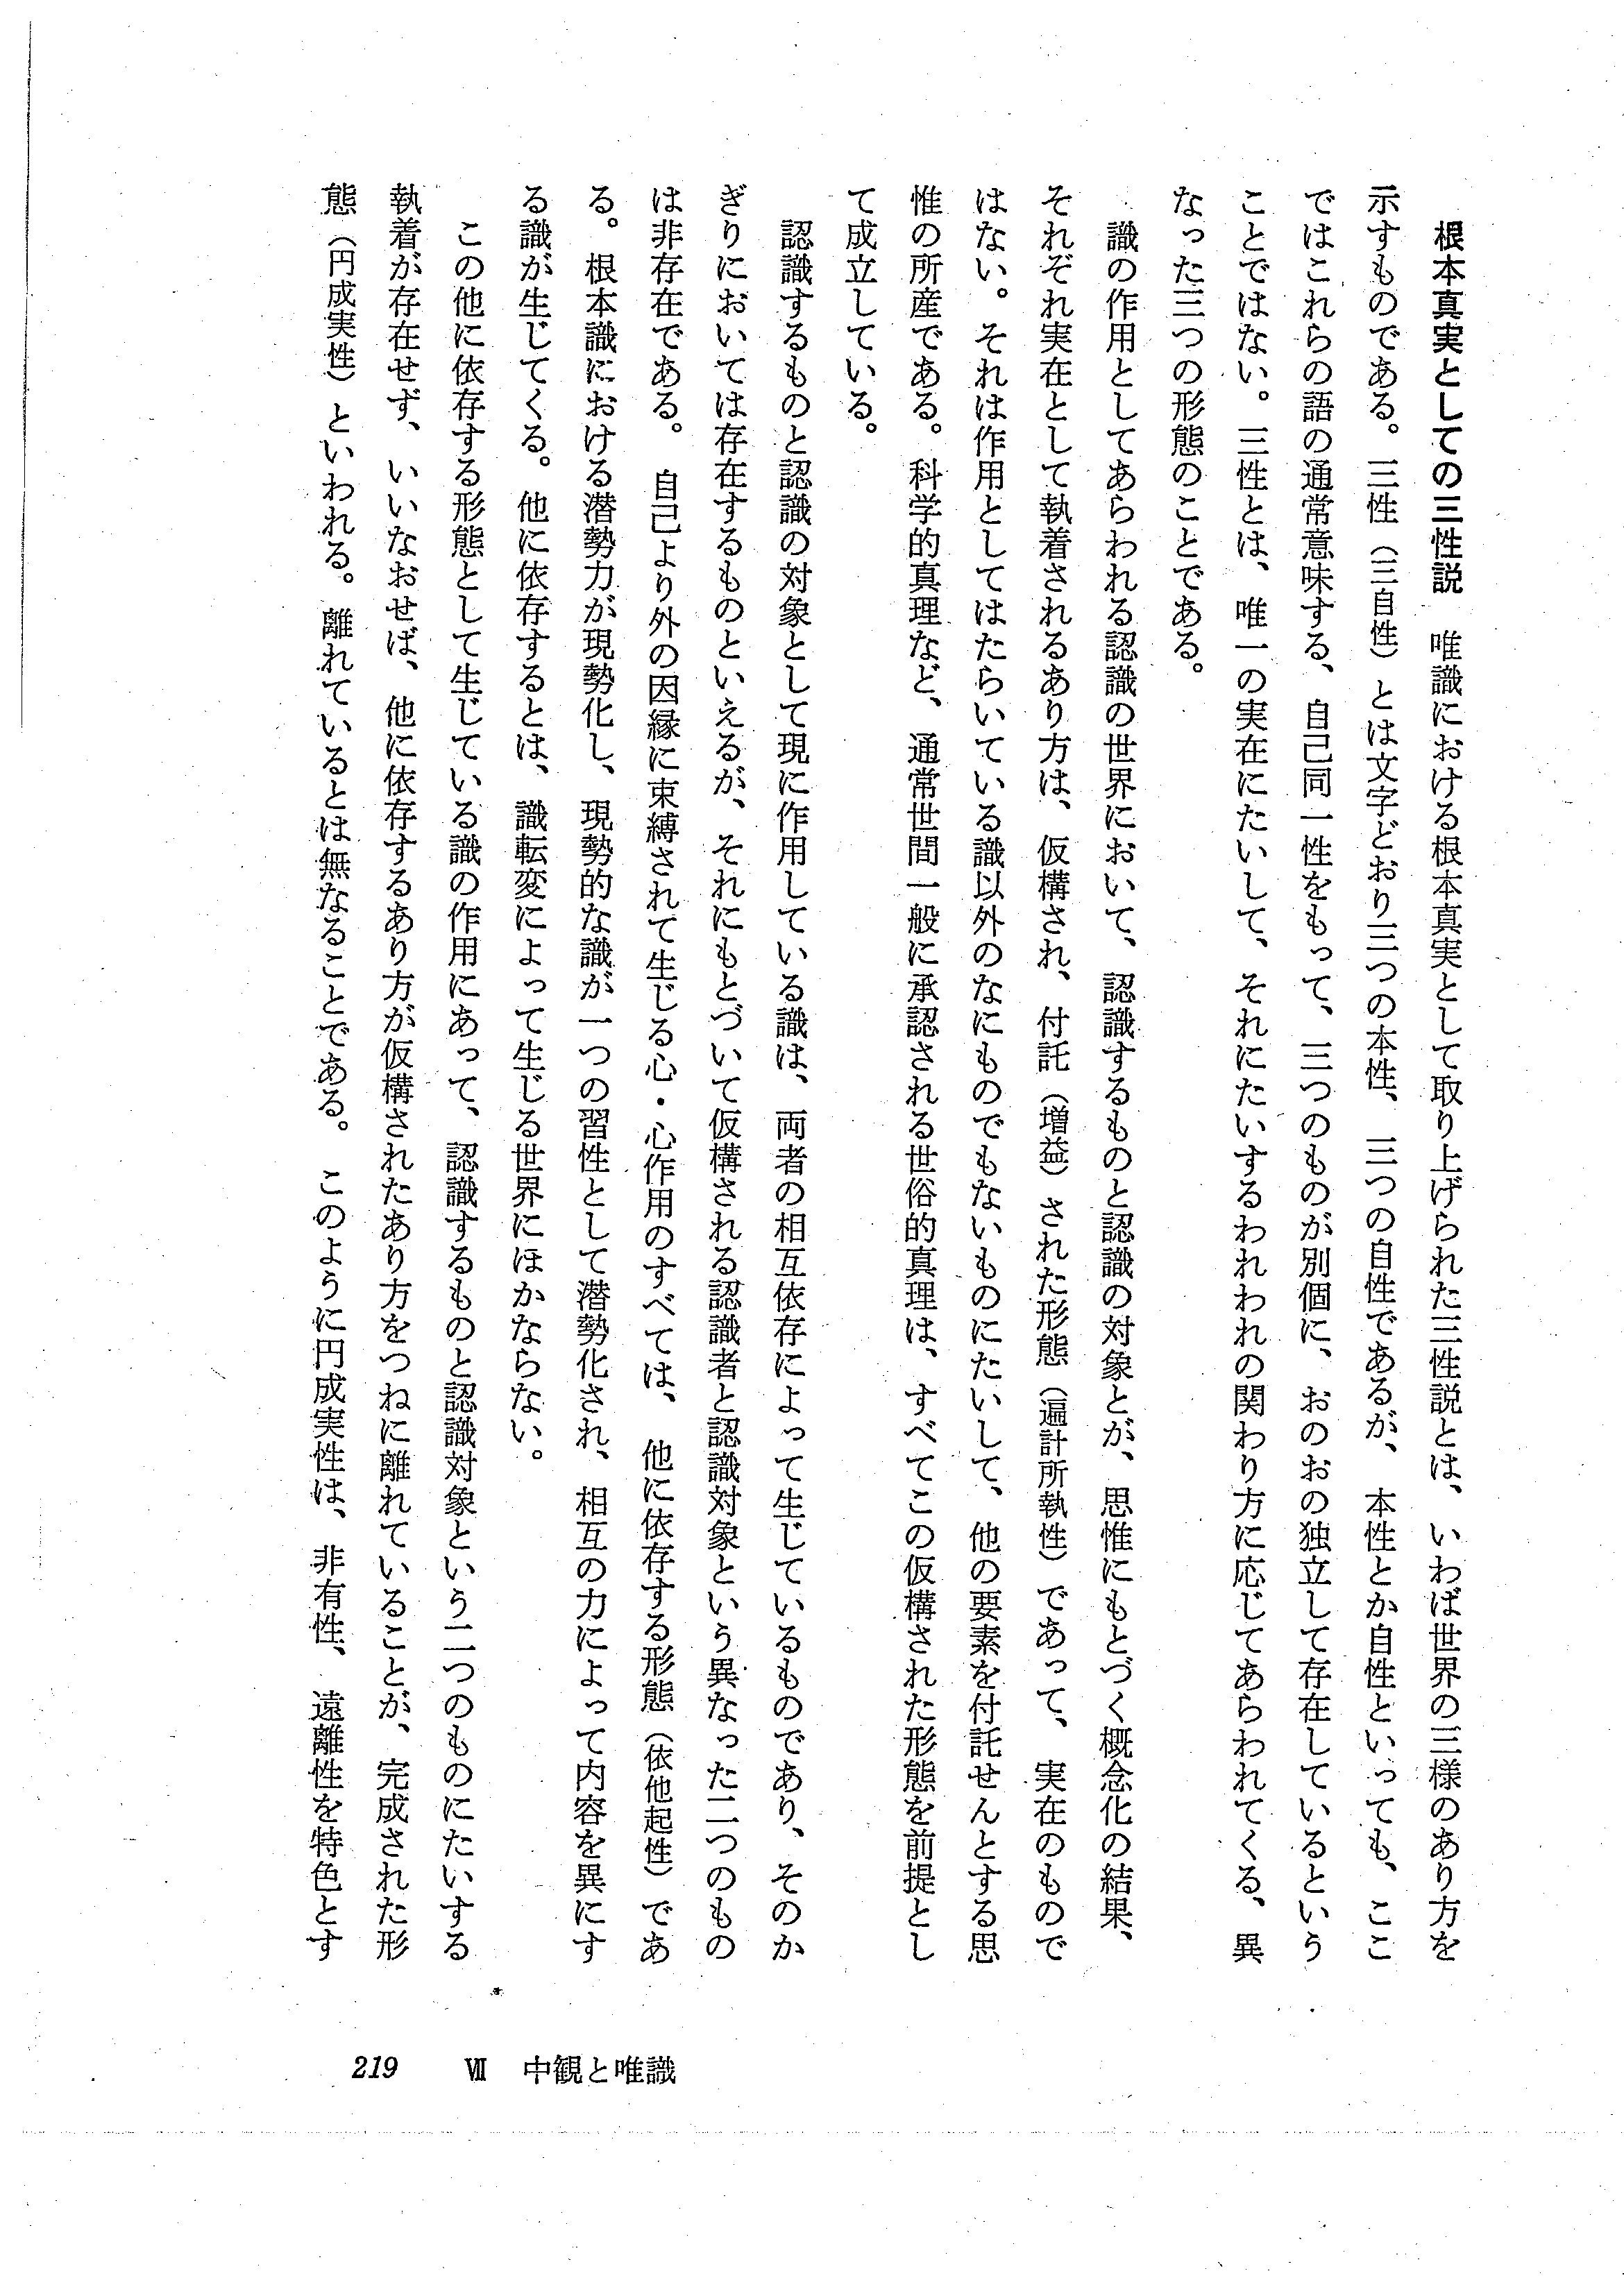 根本真実としての三性説　唯識における根本真実として取り上げられた三性説とは、いわば世界の三様のあり方を
示すものである。三性（三自性）とは文字どおり三つの本性、三つの自性であるが、本性とか自性といっても、ここ
ではこれらの語の通常意味する、自己同一性をもって、三つのものが別個に、おのおの独立して存在しているという
ことではない。三性とは、唯一の実在にたいして、それにたいするわれわれの関わり方に応じてあらわれてくる、異
なった三つの形態のことである。
識の作用としてあらわれる認識の世界において、認識するものと認識の対象とが、思惟にもとづく概念化の結果、
それぞれ実在として執着されるあり方は、仮構され、付託（増益）された形態（遍計所執性）であって、実在のもので
はない。それは作用としてはたらいている識以外のなにものでもないものにたいして、他の要素を付託せんとする思
惟の所産である。科学的真理など、通常世間一般に承認される世俗的真理は、すべてこの仮構された形態を前提とし
て成立している。
認識するものと認識の対象として現に作用している識は、両者の相互依存によって生じているものであり、そのか
ぎりにおいては存在するものといえるが、それにもとづいて仮構される認識者と認識対象という異なった二つのもの
は非存在である。自己より外の因縁に束縛されて生じる心・心作用のすべては、他に依存する形態（依他起性）であ
る。根本識における潜勢力が現勢化し、現勢的な識が一つの習性として潜勢化され、相互の力によって内容を異にす
る識が生じてくる。他に依存するとは、識転変によって生じる世界にほかならない。
この他に依存する形態として生じている識の作用にあって、認識するものと認識対象という二つのものにたいする
執着が存在せず、いいなおせば、他に依存するあり方が仮構されたあり方をつねに離れていることが、完成された形
態（円成実性）といわれる。離れているとは無なることである。このように円成実性は、非有性、遠離性を特色とす
219　Ⅶ　中観と唯識